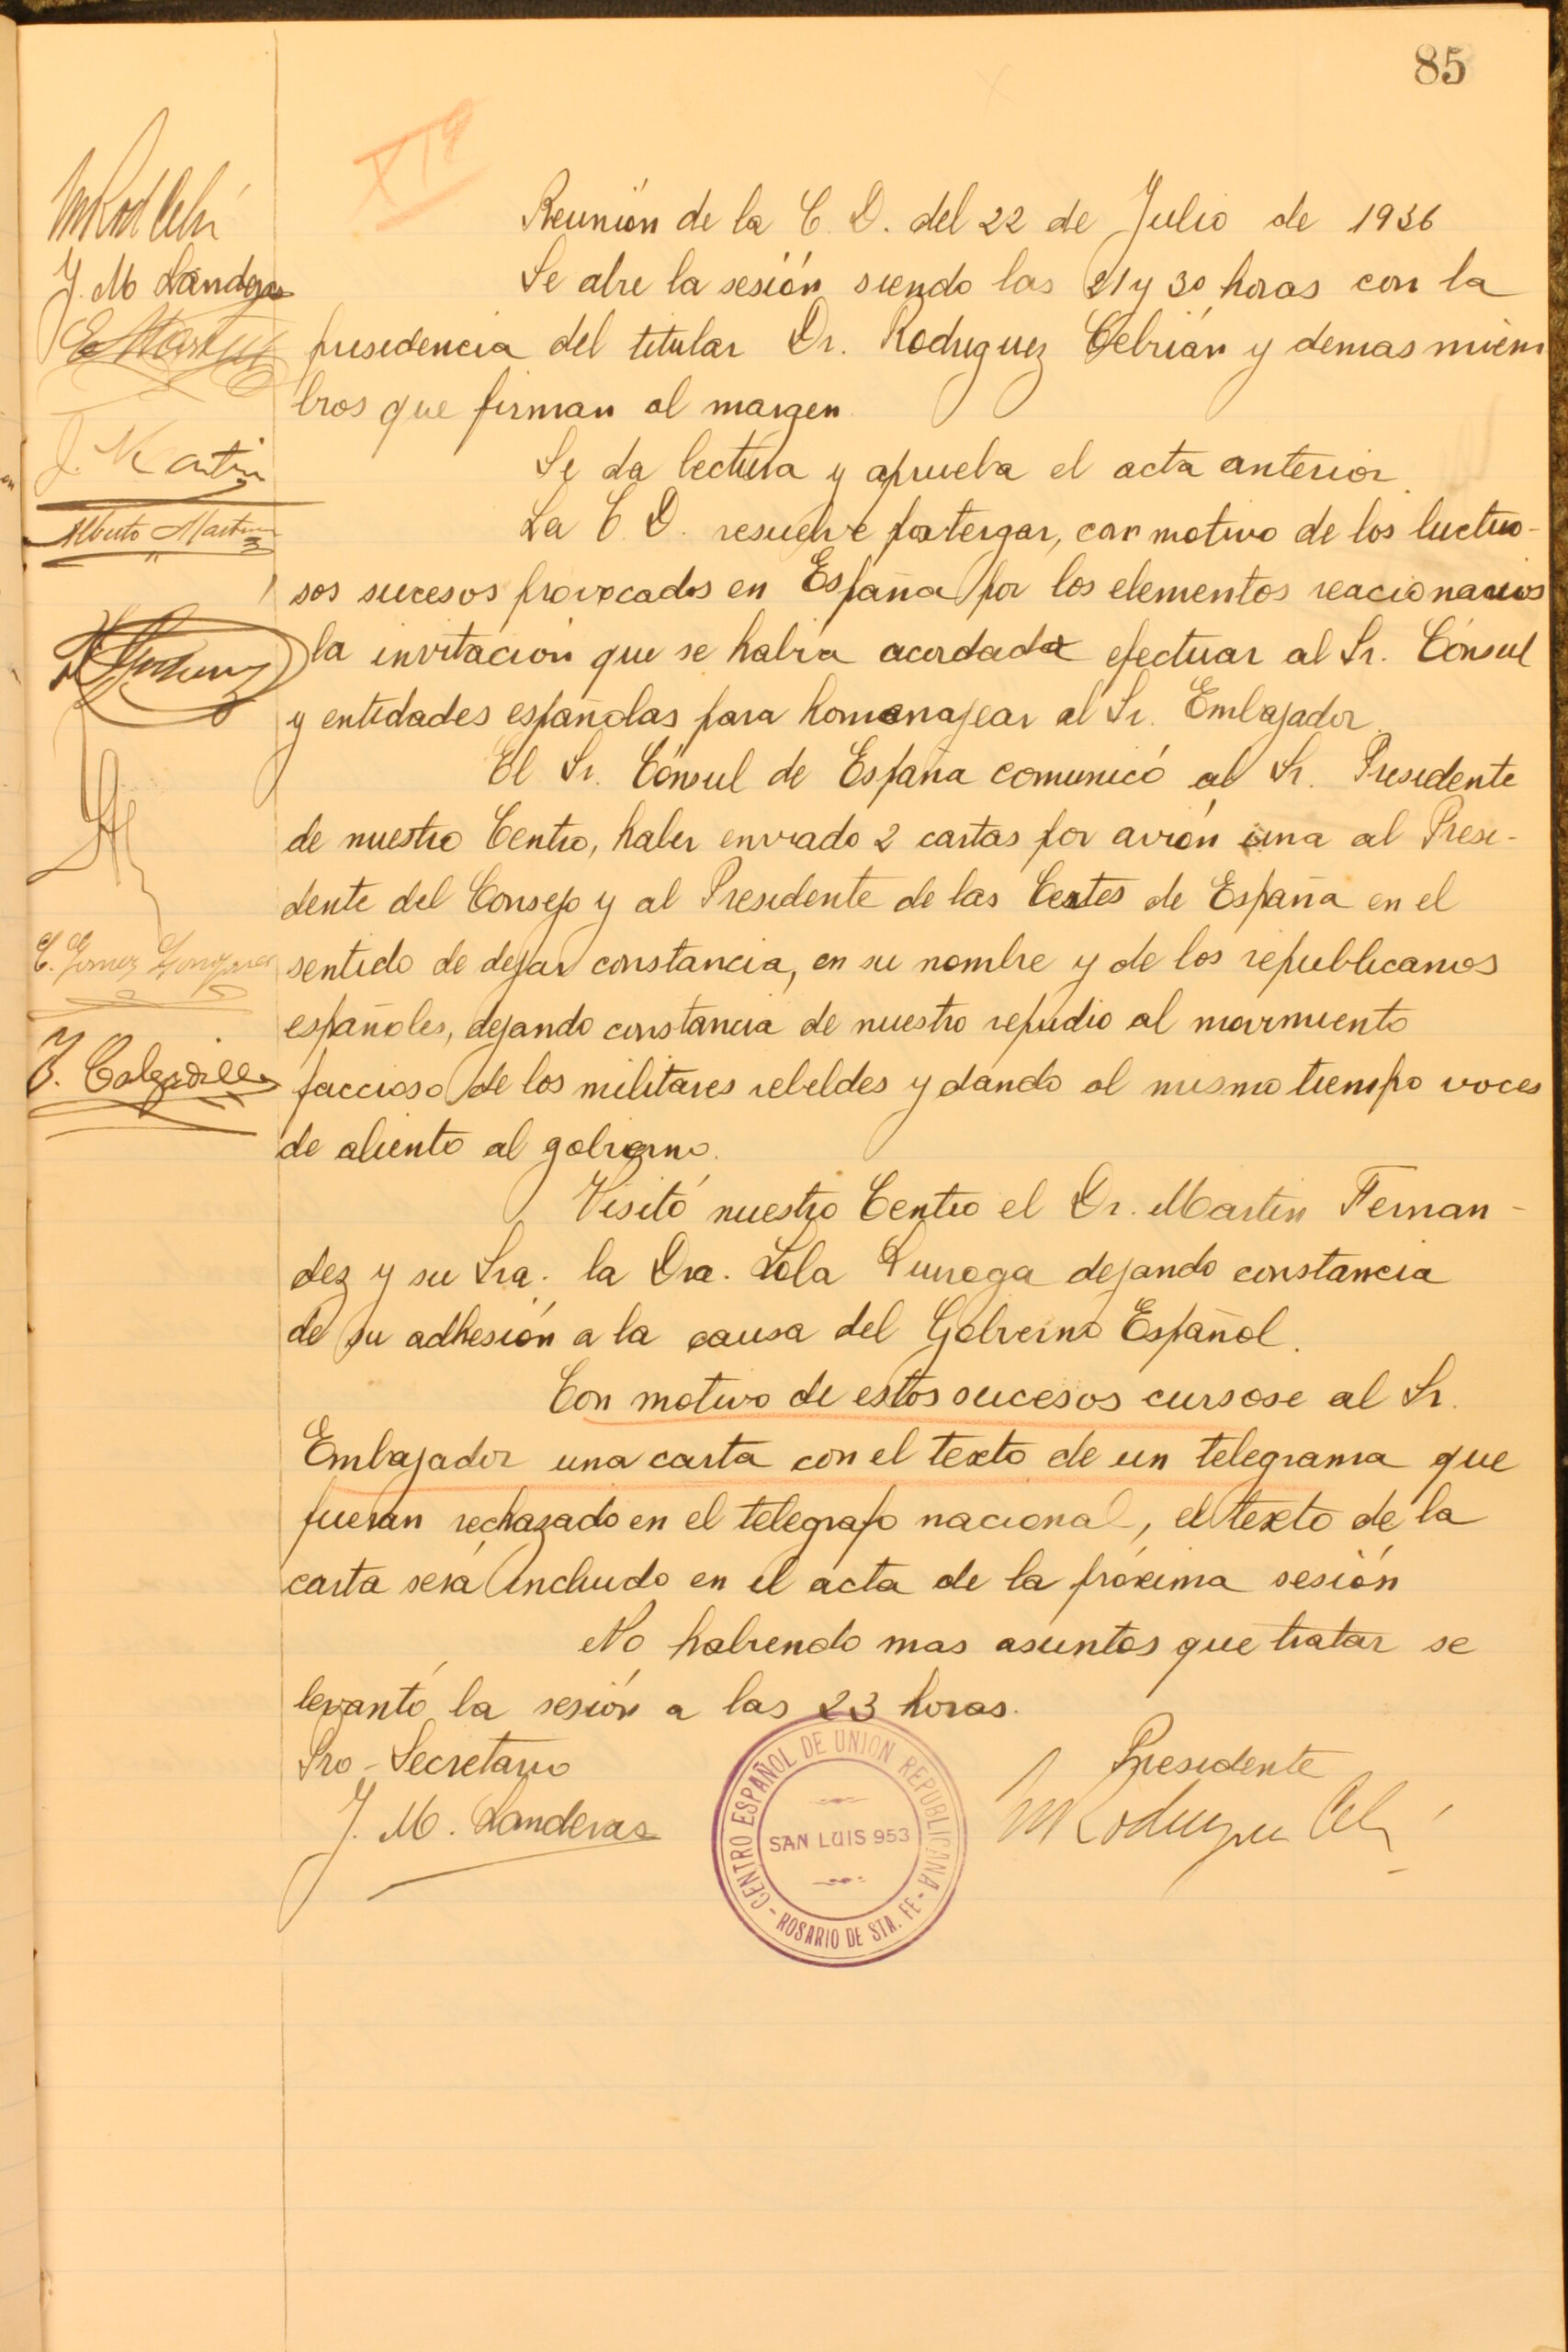 85
XIª
Reunión de la C. D. del 22 de Julio de 1936
Se abre la sesión siendo las 21 y 30 horas con la
presidencia del titular Dr. Rodriguez Cebrián y demas miem
bros que firman al margen.
Se da lectura y aprueba el acta anterior.
La C. D. resuelve postergar, con motivo de los luctuo-
sos sucesos provocados en España por los elementos reacionarios
la invitación que se habia acordado efectuar al Sr. Cónsul
y entidades españolas para homenajear al Sr. Embajador.
El Sr. Cónsul de España comunicó al Sr. Presidente
de nuestro Centro, haber enviado 2 cartas por avión una al Presi-
dente del Consejo y al Presidente de las Cortes de España en el
sentido de dejar constancia, en su nombre y de los republicanos
españoles, dejando constancia de nuestro repudio al movimiento
faccioso de los militares rebeldes y dando al mismo tiempo voces
de aliento al gobierno.
Visitó nuestro Centro el Dr. Martin Fernan-
dez y su Sra. la Dra. Lola Quiroga dejando constancia
de su adhesión a la causa del Gobierno Español.
Con motivo de estos sucesos cursose al Sr.
Embajador una carta con el texto de un telegrama que
fueran rechazado en el telegrafo nacional, el texto de la
carta será incluido en el acta de la próxima sesión
No habiendo mas asuntos que tratar se
levantó la sesión a las 23 horas.
Pro-Secretario
Presidente
J. M. Landeras
M Rodriguez Ceb
CENTRO ESPAÑOL DE UNION REPUBLICANA
SAN LUIS 953
ROSARIO DE STA. FE
M Rod Ceb
J. M Landeras
E. Martin
J. Martin
Alberto Martin
C. Gomez
J. Calzadilla